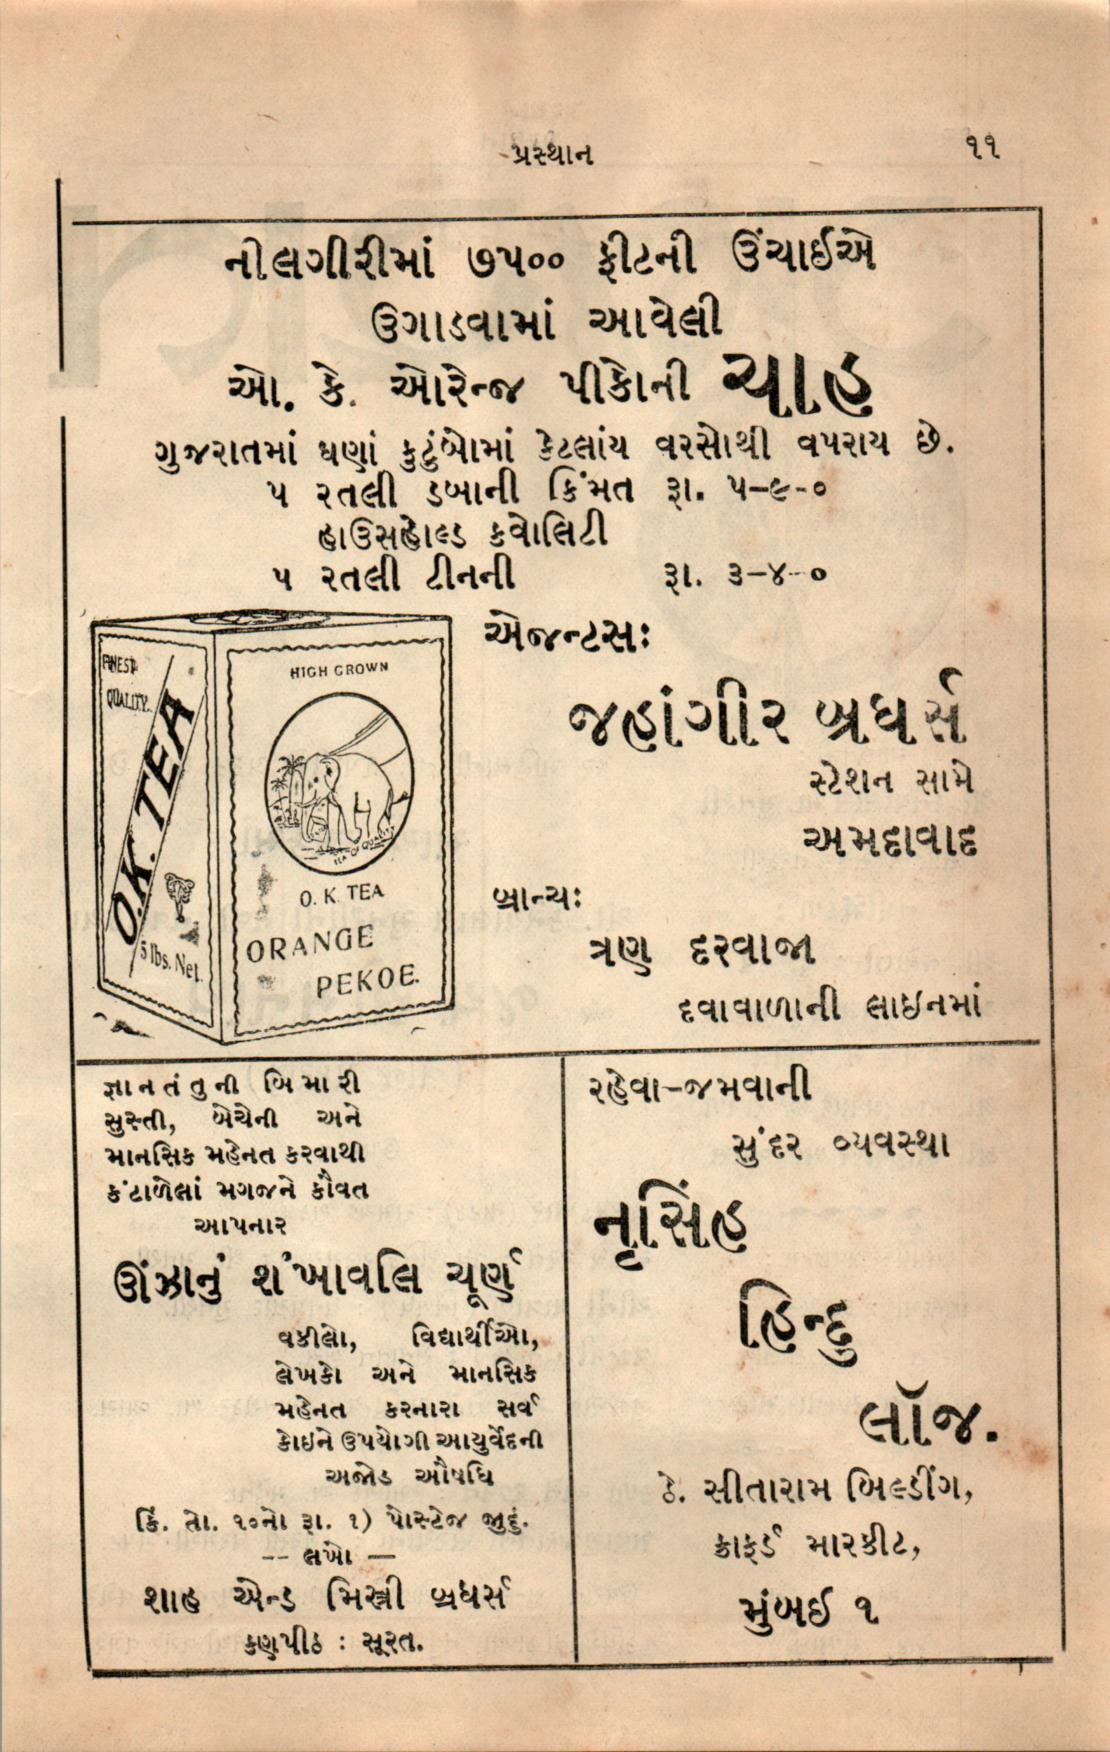 પ્રસ્થાન
૧૧
નીલગીરીમાં ૭૫૦૦ ફીટની ઉંચાઈએ
ઉગાડવામાં આવેલી
ઓ. કે. ઓરેન્જ પીકોની ચાહ
ગુજરાતમાં ઘણાં કુટુંબોમાં કેટલાંય વરસોથી વપરાય છે.
૫ રતલી ડબાની કિંમત રૂા. ૫-૯-૦
હાઉસહોલ્ડ કવોલિટી
૫ રતલી ટીનની રૂા. ૩-૪-૦
FINEST
QUALITY.
O.K. TEA
5 lbs. Net.
HIGH GROWN
TEA OF QUALITY
O. K. TEA
ORANGE
PEKOE.
એજન્ટસઃ
જહાંગીર બ્રધર્સ
સ્ટેશન સામે
અમદાવાદ
બ્રાન્ચઃ
ત્રણ દરવાજા
દવાવાળાની લાઇનમાં
જ્ઞાનતંતુની બિમારી
સુસ્તી, બેચેની અને
માનસિક મહેનત કરવાથી
કંટાળેલાં મગજને કૌવત
આપનાર
ઊંઝાનું શંખાવલિ ચૂર્ણ
વકીલો, વિદ્યાર્થીઓ,
લેખકો અને માનસિક
મહેનત કરનારા સર્વ
કોઇને ઉપયોગી આયુર્વેદની
અજોડ ઔષધિ
કિં. તો. ૧૦નો રૂા. ૧) પોસ્ટેજ જુદું.
-- લખો —
શાહ એન્ડ મિસ્ત્રી બ્રધર્સ
કણપીઠ : સૂરત.
રહેવા-જમવાની
સુંદર વ્યવસ્થા
નૃસિંહ
હિન્દુ
લૉજ.
ઠે. સીતારામ બિલ્ડીંગ,
ક્રાફર્ડ મારકીટ,
મુંબઈ ૧